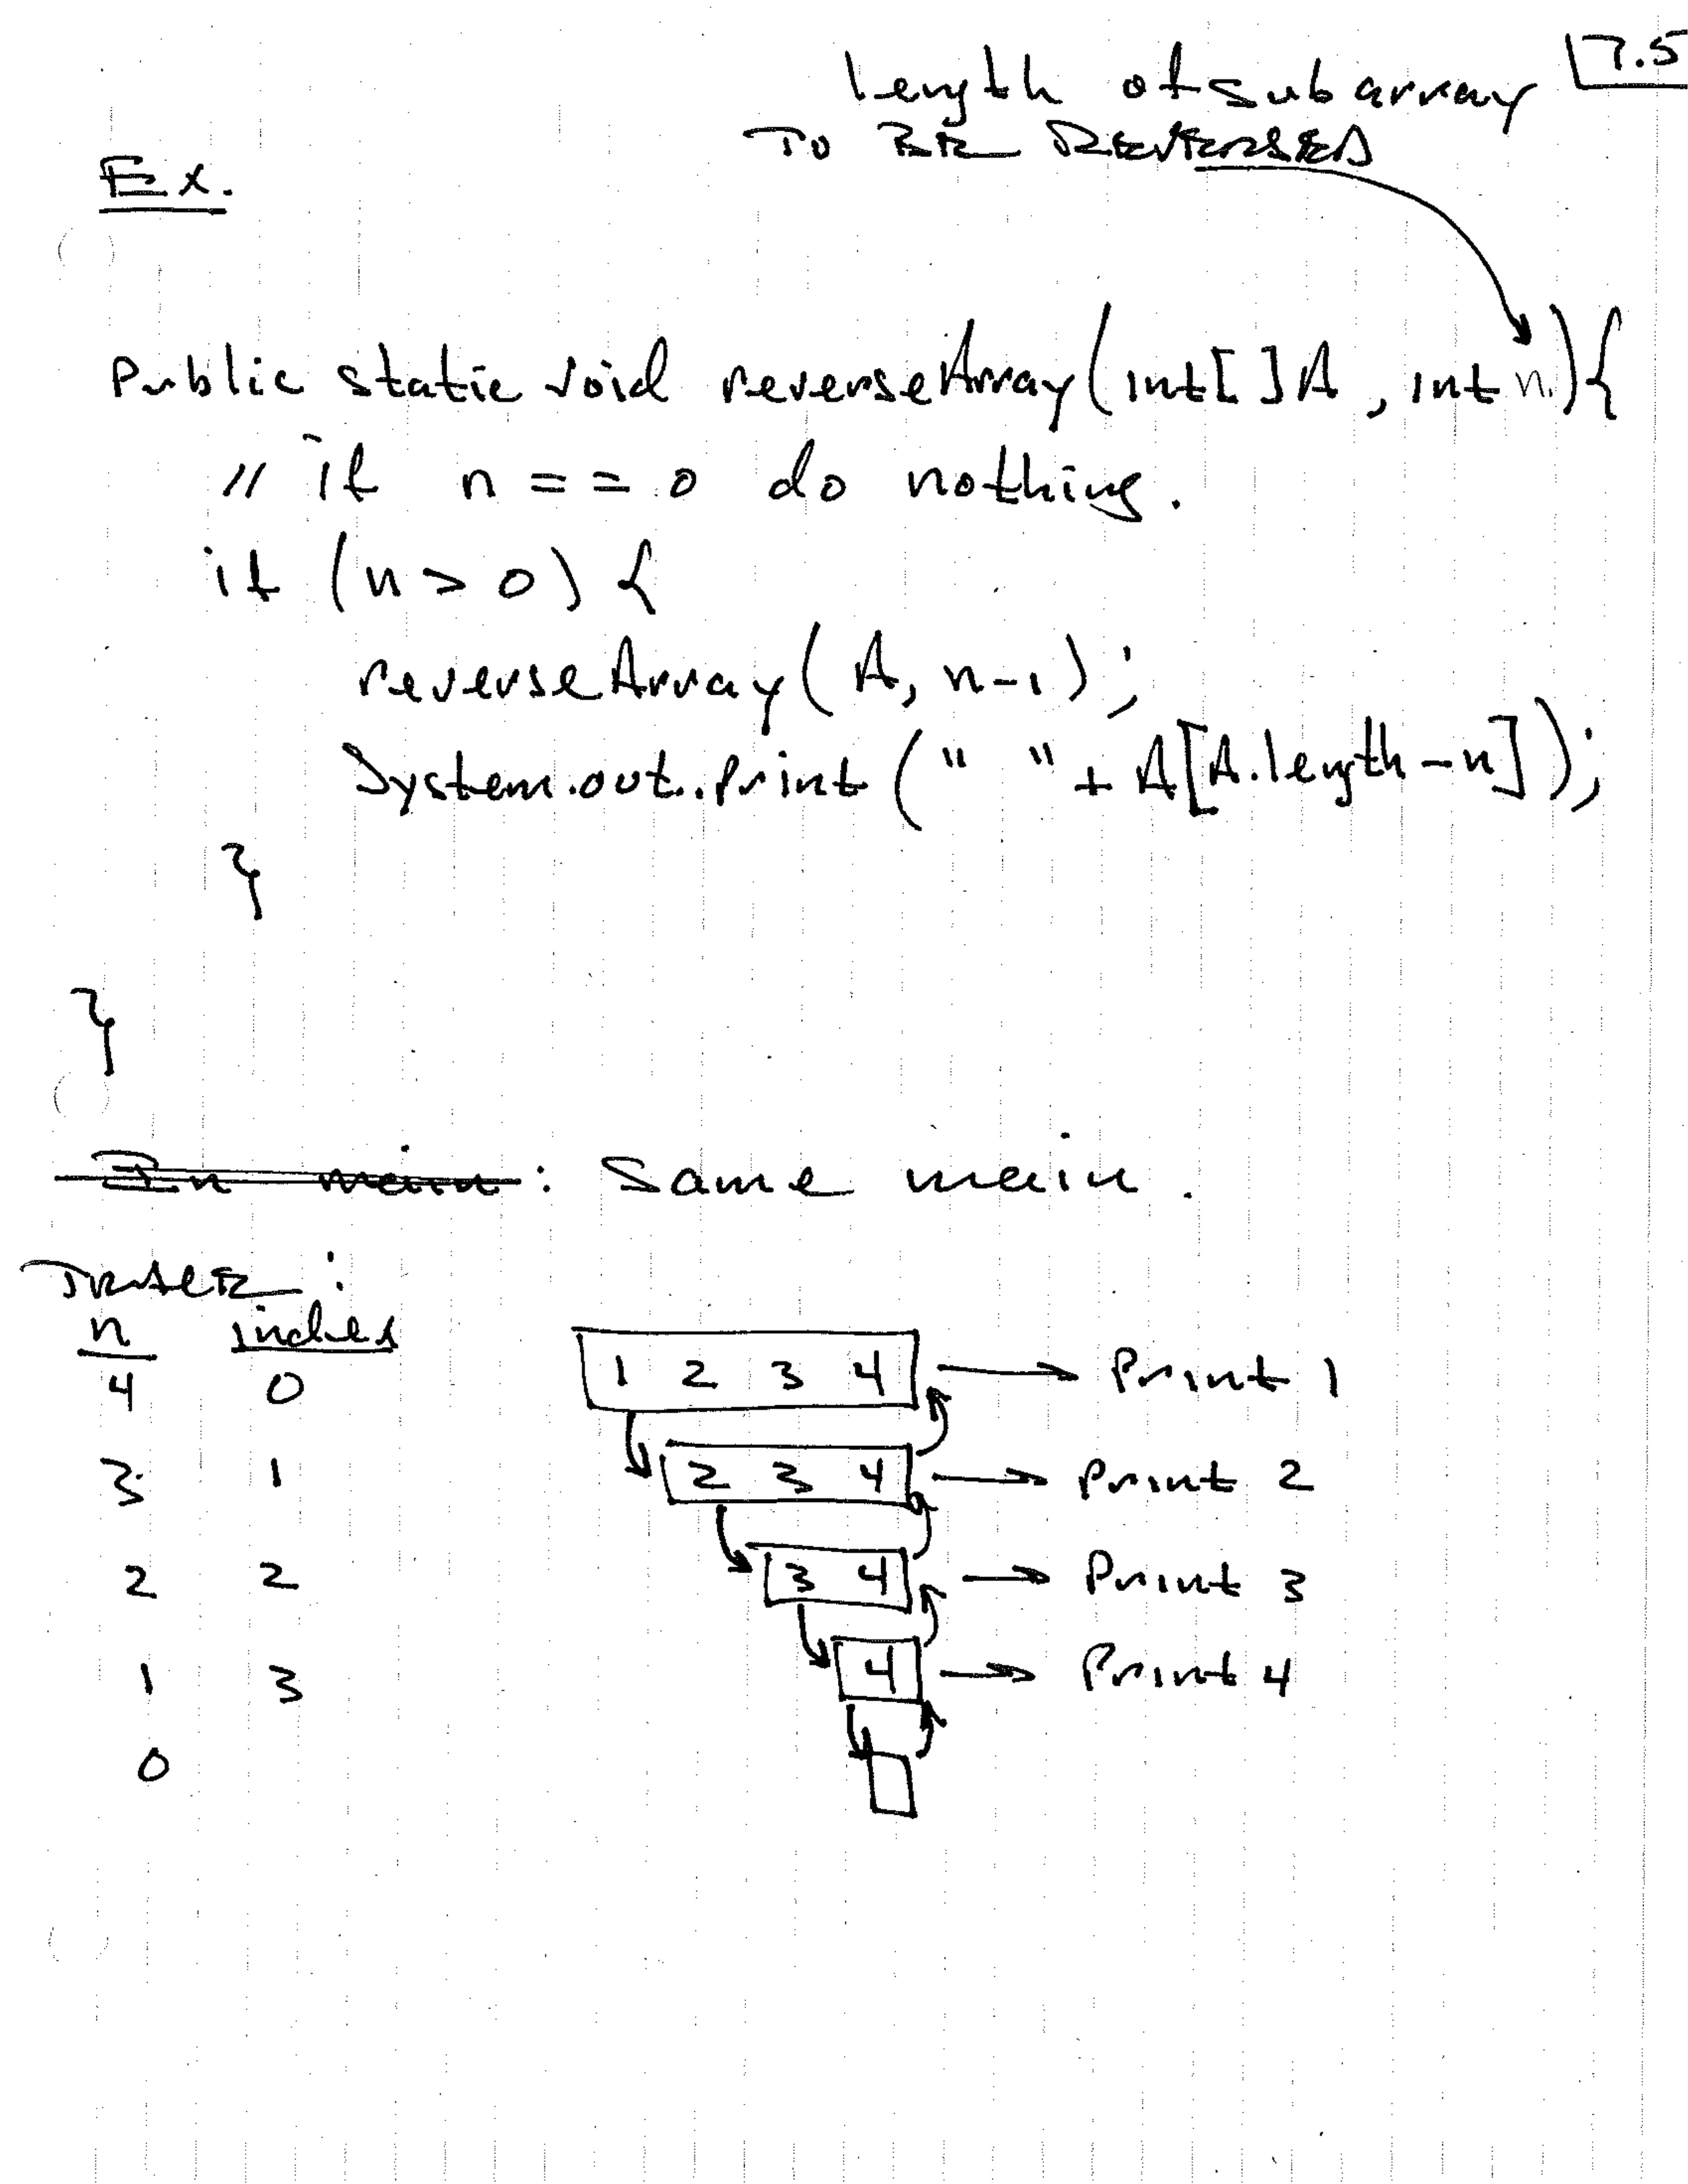 7.5
length of subarray
TO BE REVERSED
Ex.
Public static void reverseArray(int[ ]A , int n){
// if n == 0 do nothing.
if (n > 0) {
reverseArray(A, n-1);
System.out.print(" "+ A[A.length-n]);
}
}
In main: Same main.
TRACE:
n index
4 0
1 2 3 4 → Print 1
3 1
2 3 4 → Print 2
2 2
3 4 → Print 3
1 3
4 → Print 4
0